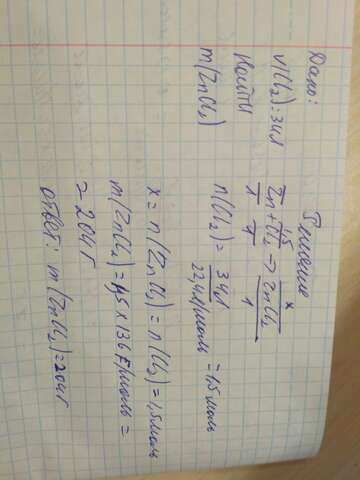 Дано:
V(Cl₂) = 34л
Найти
m(ZnCl₂)
Решение
1,5 x
Zn + Cl₂ → ZnCl₂
1 1 1
n(Cl₂) = 34л / 22,4л/моль = 1,5 моль
x = n(ZnCl₂) = n(Cl₂) = 1,5 моль
m(ZnCl₂) = 1,5 x 136 г/моль =
= 204 г
ответ: m(ZnCl₂) = 204г